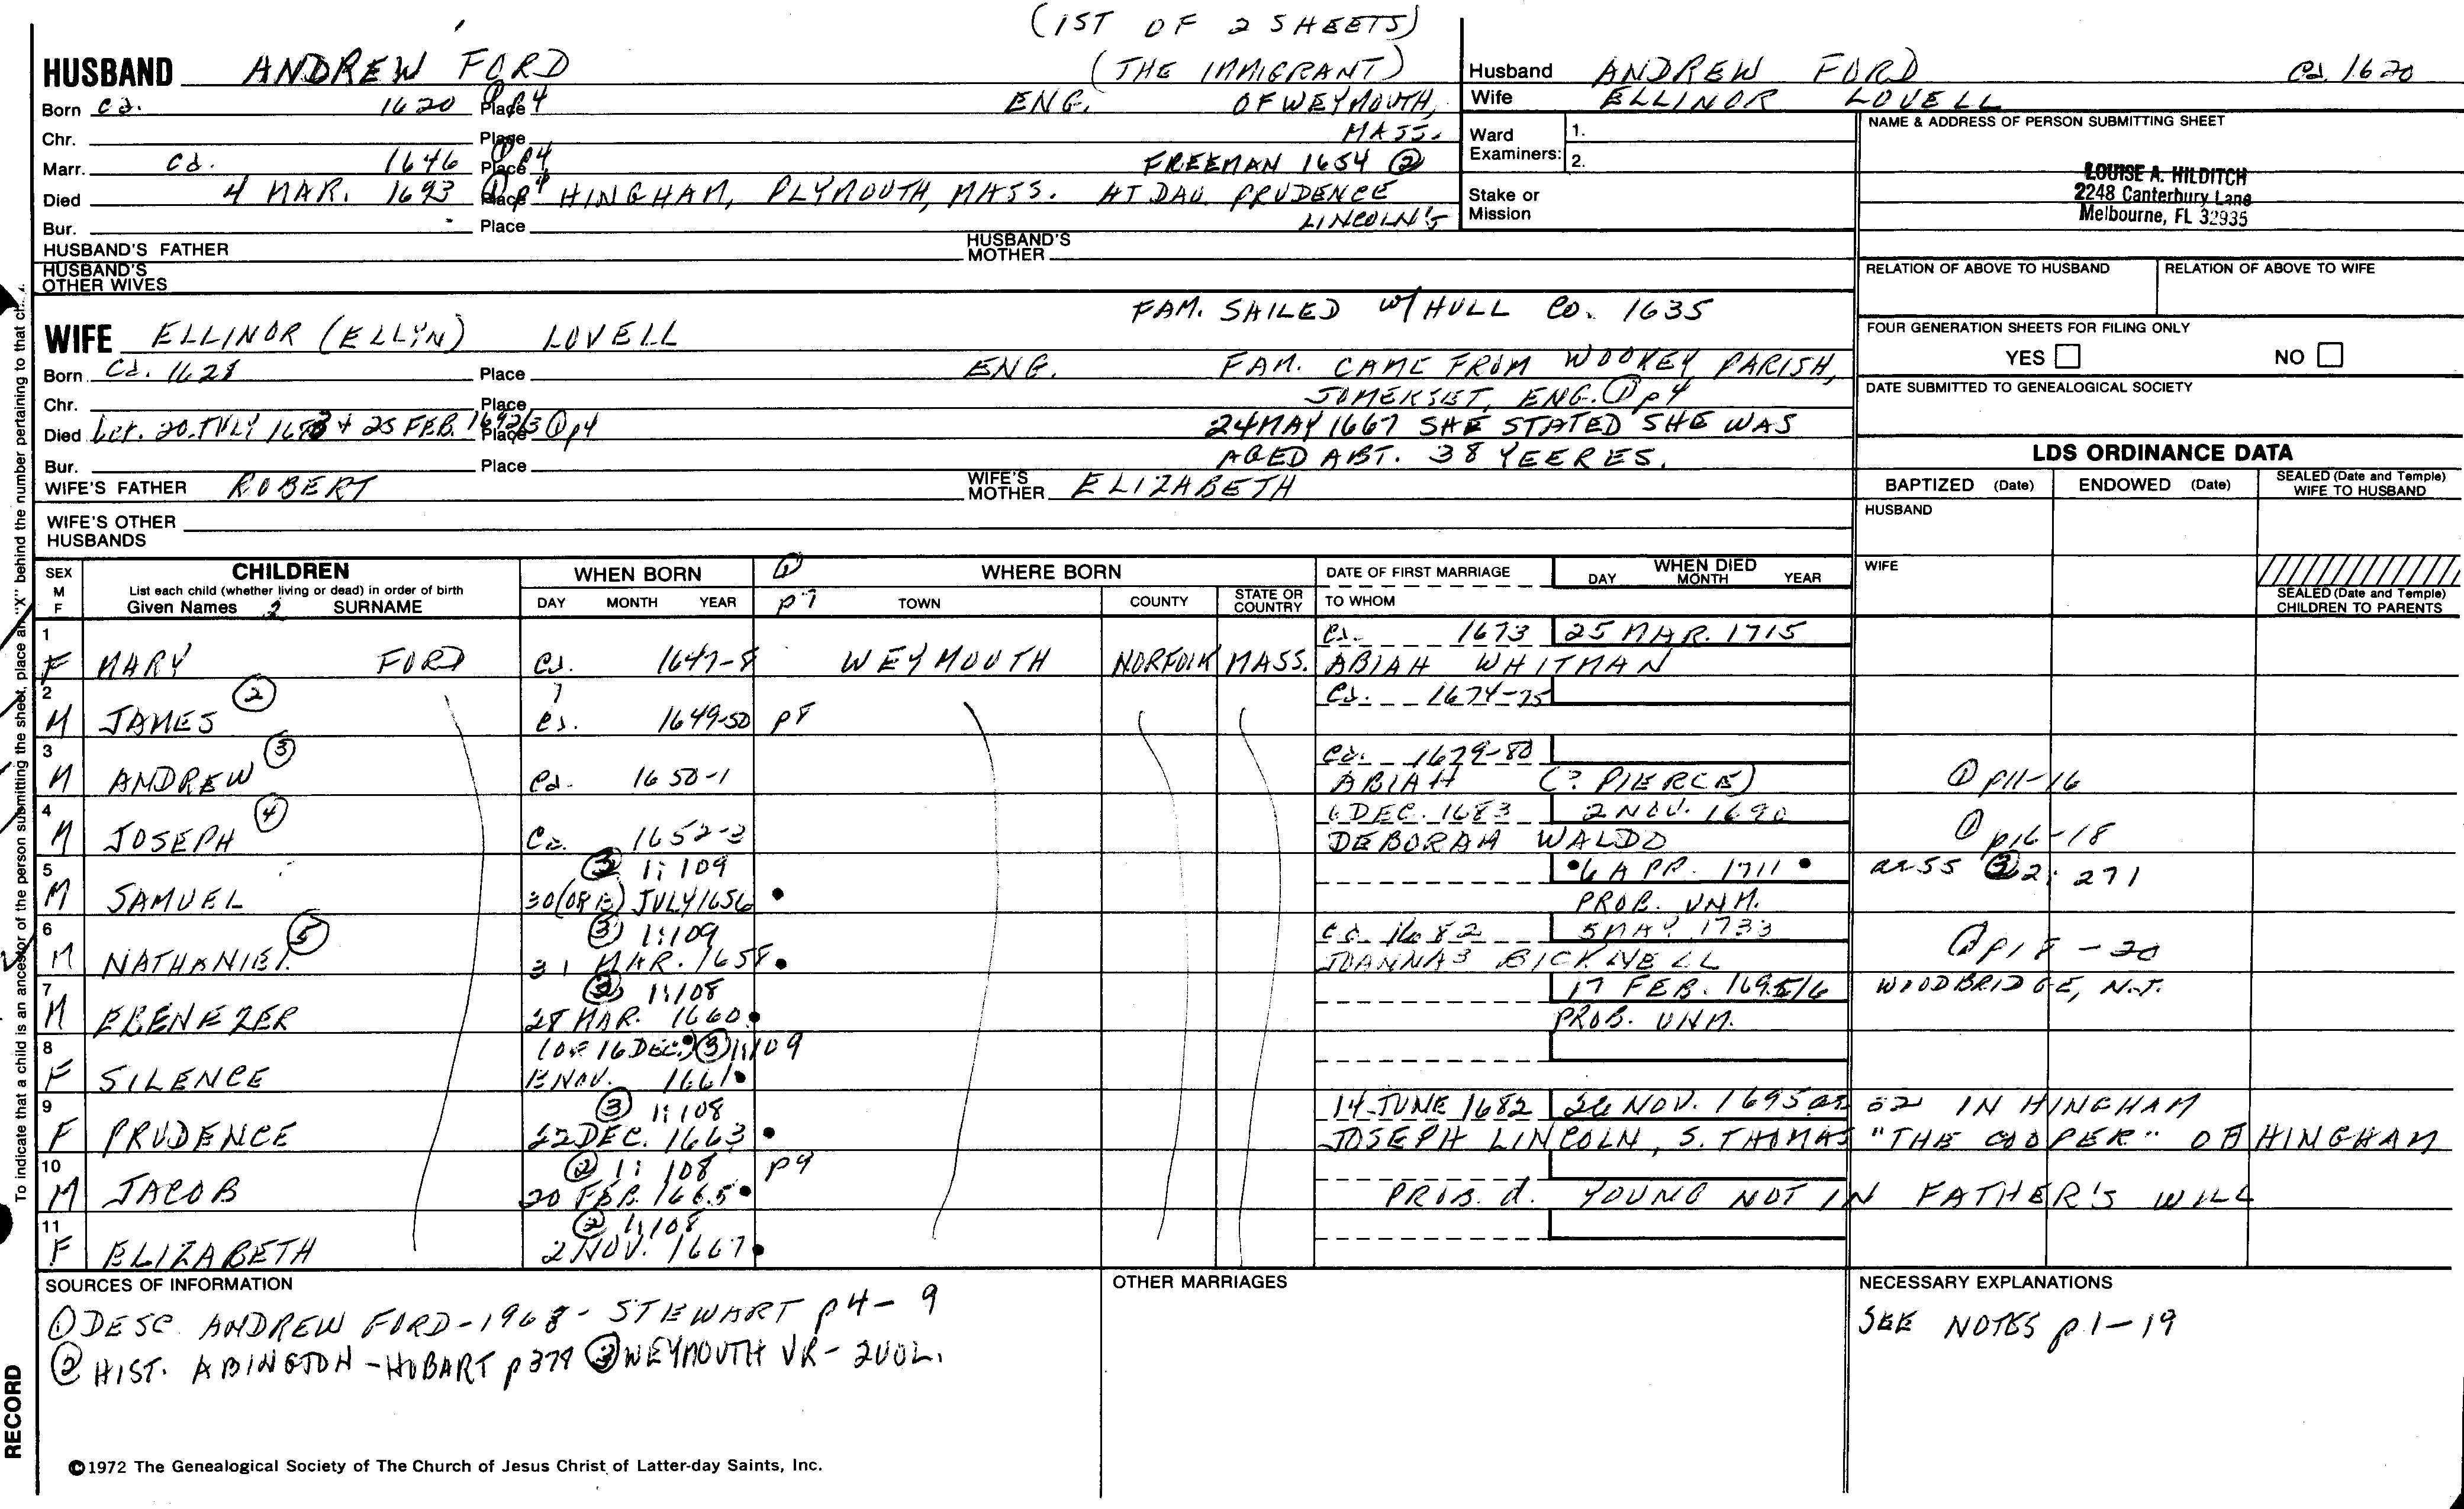 (1ST OF 2 SHEETS)
HUSBAND ANDREW FORD (THE IMMIGRANT)
Born ca. 1620 Place p4 ENG. OF WEYMOUTH,
Chr. Place MASS.
Marr. ca. 1646 Place ① p4 FREEMAN 1654 ②
Died 4 MAR. 1693 Place ① p4 HINGHAM, PLYMOUTH, MASS. AT DAU. PRUDENCE
Bur. Place LINCOLN'S
HUSBAND'S FATHER HUSBAND'S MOTHER
HUSBAND'S OTHER WIVES
FAM. SAILED W/ HULL CO. 1635
WIFE ELLINOR (ELLYN) LOVELL
Born ca. 1628 Place ENG. FAM. CAME FROM WOOKEY PARISH,
Chr. Place SOMERSET, ENG. ① p4
Died bet. 20 JULY & 25 FEB. 1692/3 Place ① p4 24 MAY 1667 SHE STATED SHE WAS
Bur. Place AGED ABT. 38 YEERES.
WIFE'S FATHER ROBERT WIFE'S MOTHER ELIZABETH
WIFE'S OTHER HUSBANDS
Husband ANDREW FORD ca. 1620
Wife ELLINOR LOVELL
Ward Examiners: 1.
2.
Stake or Mission
NAME & ADDRESS OF PERSON SUBMITTING SHEET
LOUISE A. HILDITCH
2248 Canterbury Lane
Melbourne, FL 32935
RELATION OF ABOVE TO HUSBAND RELATION OF ABOVE TO WIFE
FOUR GENERATION SHEETS FOR FILING ONLY
YES NO
DATE SUBMITTED TO GENEALOGICAL SOCIETY
LDS ORDINANCE DATA
BAPTIZED (Date) ENDOWED (Date) SEALED (Date and Temple) WIFE TO HUSBAND
HUSBAND
WIFE
SEALED (Date and Temple) CHILDREN TO PARENTS
SEX M F
CHILDREN
List each child (whether living or dead) in order of birth
Given Names 2 SURNAME
WHEN BORN
DAY MONTH YEAR
① p7
WHERE BORN
TOWN COUNTY STATE OR COUNTRY
DATE OF FIRST MARRIAGE
TO WHOM
WHEN DIED
DAY MONTH YEAR
1 ca. 1673 25 MAR. 1715
F MARY FORD ca. 1647-8 WEYMOUTH NORFOLK MASS. ABIAH WHITMAN
2 ② ca. 1674-75
M JAMES ca. 1649-50 p8
3 ③ ca. 1679-80
M ANDREW ca. 1650-1 ABIAH (? PIERCE) ① p11-16
4 ④ 6 DEC. 1683 2 NOV. 1690
M JOSEPH ca. 1652-3 DEBORAH WALDO ① p16-18
5 ③ 1:109 6 APR. 1711 ae 55 ③ 2:271
M SAMUEL 30 (OR 13) JULY 1656 PROB. UNM.
6 ⑤ ③ 1:109 ca. 1682 5 MAY 1733
M NATHANIEL 31 MAR. 1658 JOANNA3 BICKNELL ① p18-20
7 ③ 1:108 17 FEB. 1695/6 WOODBRIDGE, N.J.
M EBENEZER 28 MAR. 1660 PROB. UNM.
8 (OR 16 DEC.) ③ 1:109
F SILENCE NOV. 1661
9 ③ 1:108 14 JUNE 1682 26 NOV. 1695 ae 32 IN HINGHAM
F PRUDENCE 22 DEC. 1663 JOSEPH LINCOLN, S. THOMAS "THE COOPER" OF HINGHAM
10 ③ 1:108 p9
M JACOB 20 FEB. 1665 PROB. d. YOUNG NOT IN FATHER'S WILL
11 ③ 1:108
F ELIZABETH 2 NOV. 1667
SOURCES OF INFORMATION
① DESC. ANDREW FORD - 1968 - STEWART p4-9
② HIST. ABINGTON - HOBART p379 ③ WEYMOUTH VR - 2 VOL.
OTHER MARRIAGES
NECESSARY EXPLANATIONS
SEE NOTES p.1-19
©1972 The Genealogical Society of The Church of Jesus Christ of Latter-day Saints, Inc.
To indicate that a child is an ancestor of the person submitting the sheet, place an "X" behind the number pertaining to that
RECORD